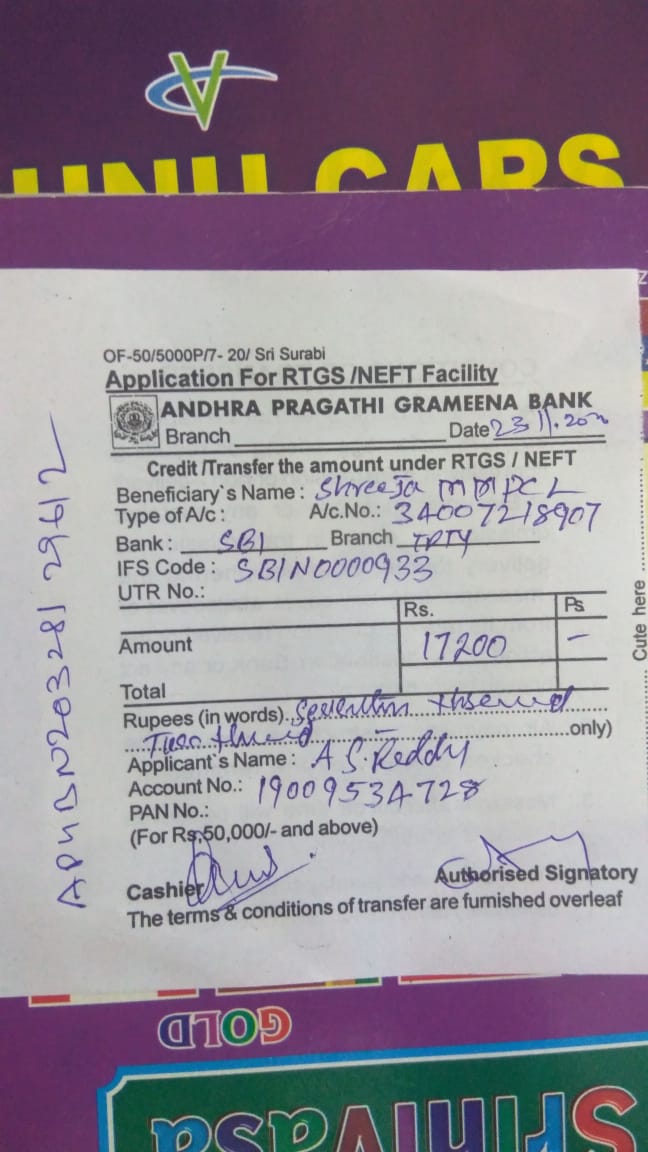 V
UNU CAPS
OF-50/5000P/7- 20/ Sri Surabi
Application For RTGS /NEFT Facility
ANDHRA PRAGATHI GRAMEENA BANK
Branch Date 23 11.20
Credit /Transfer the amount under RTGS / NEFT
Beneficiary`s Name : Shreeja MMPCL
Type of A/c : A/c.No.: 34007218907
Bank : SBI Branch TPTY
IFS Code : SBIN0000933
UTR No.:
Rs. Ps
Amount 17200 -
Total
Rupees (in words)
only)
Applicant's Name : A S. Reddy
Account No.: 19009534728
PAN No.:
(For Rs,50,000/- and above)
Cashier Authorised Signatory
The terms & conditions of transfer are furnished overleaf
Cute here
GOLD
Srinivasa